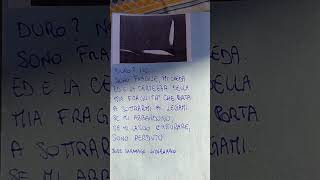 DURO? NO.
SONO FRAGILE, MI CREDA
ED È LA CERTEZZA DELLA
MIA FRAGILITÀ CHE PORTA
A SOTTRARMI AI LEGAMI.
SE MI ABBANDONO,
SE MI LASCIO CATTURARE,
SONO PERDUTO.